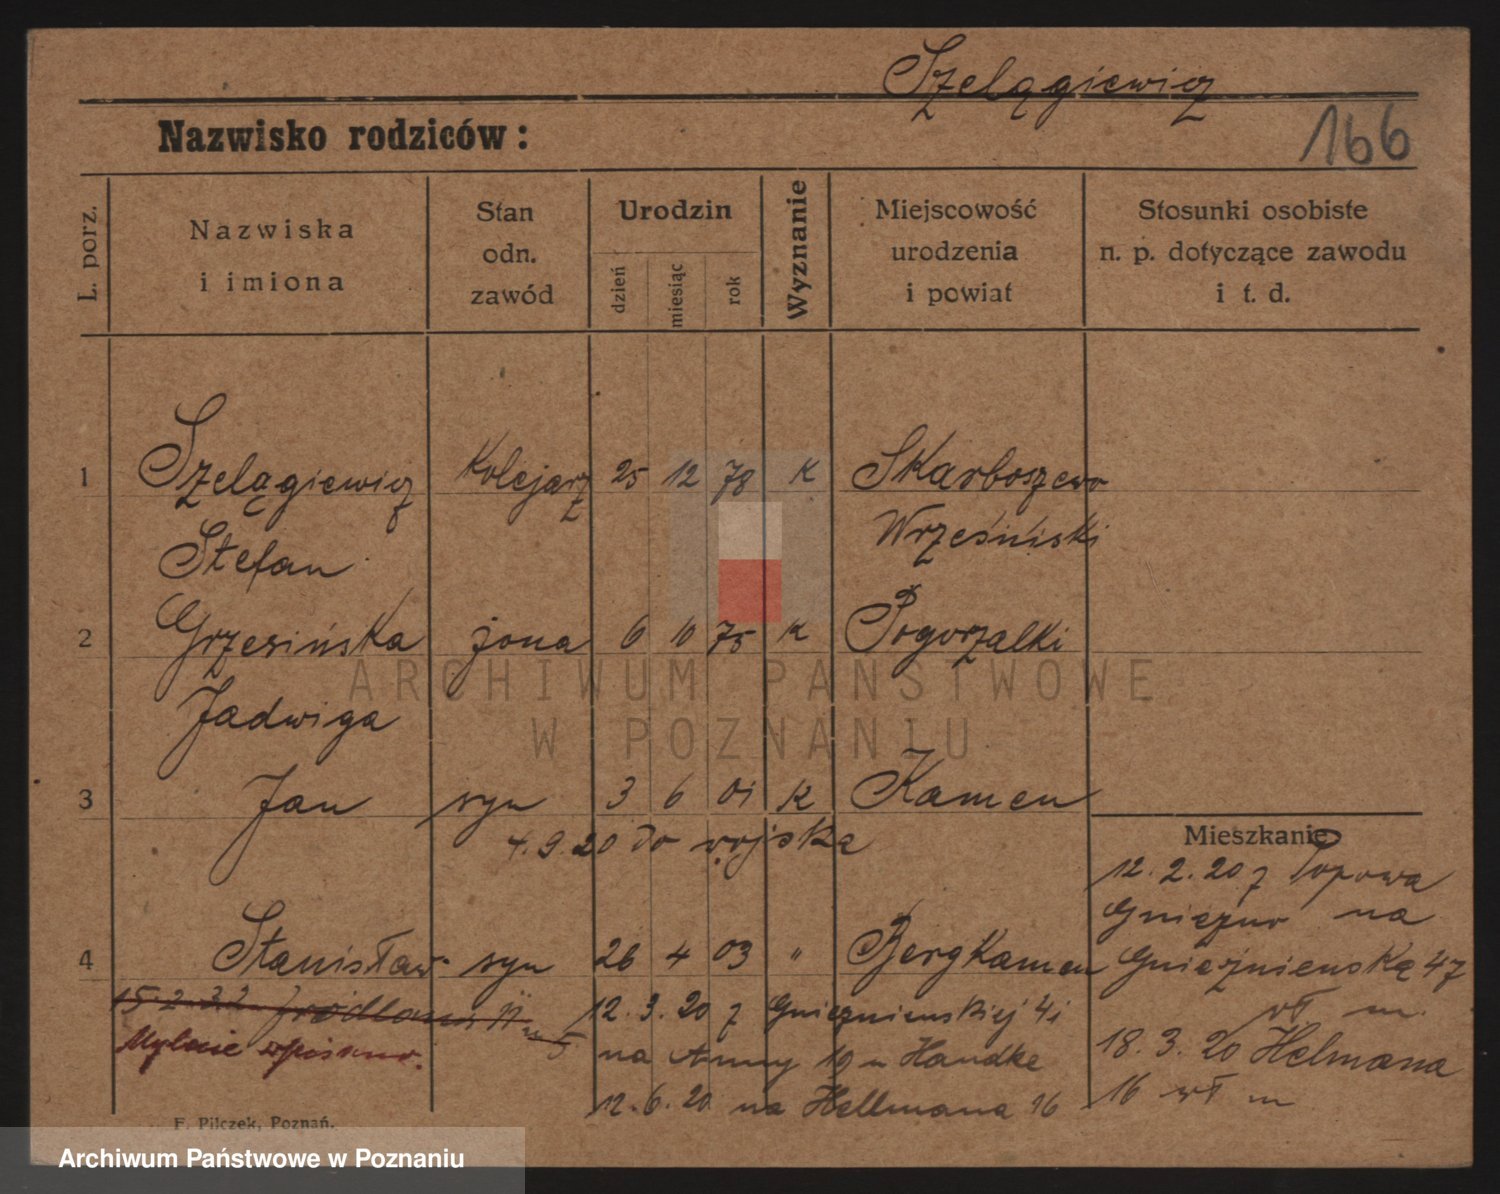 Szelągiewicz
Nazwisko rodziców:
166
L. porz.
Nazwiska
i imiona
Stan
odn.
zawód
Urodzin
dzień
miesiąc
rok
Wyznanie
Miejscowość
urodzenia
i powiat
Stosunki osobiste
n. p. dotyczące zawodu
i t. d.
1 Szelągiewicz Kolejarz 25 12 78 K Skarboszewo
Stefan Wrzesiński
2 Grzesińska żona 6 10 75 K Pogorzalki
Jadwiga
ARCHIWUM PAŃSTWOWE
W POZNANIU
3 Jan syn 3 6 01 K Kamen
4.9.20 do wojska
Mieszkanie
12.2.20 z Popowa
Gniezno na
4 Stanisław syn 26 4 03 " Bergkamen Gnieznienską 47
wł m.
15.2.32 11 m 5 12.3.20 z Gnieznienskiej 41
Mylnie wpisano. na Anny 19 u Handke
18.3.20 Helmana
16 wł m
12.6.20 na Hellmana 16
F. Pilczek, Poznań.
Archiwum Państwowe w Poznaniu